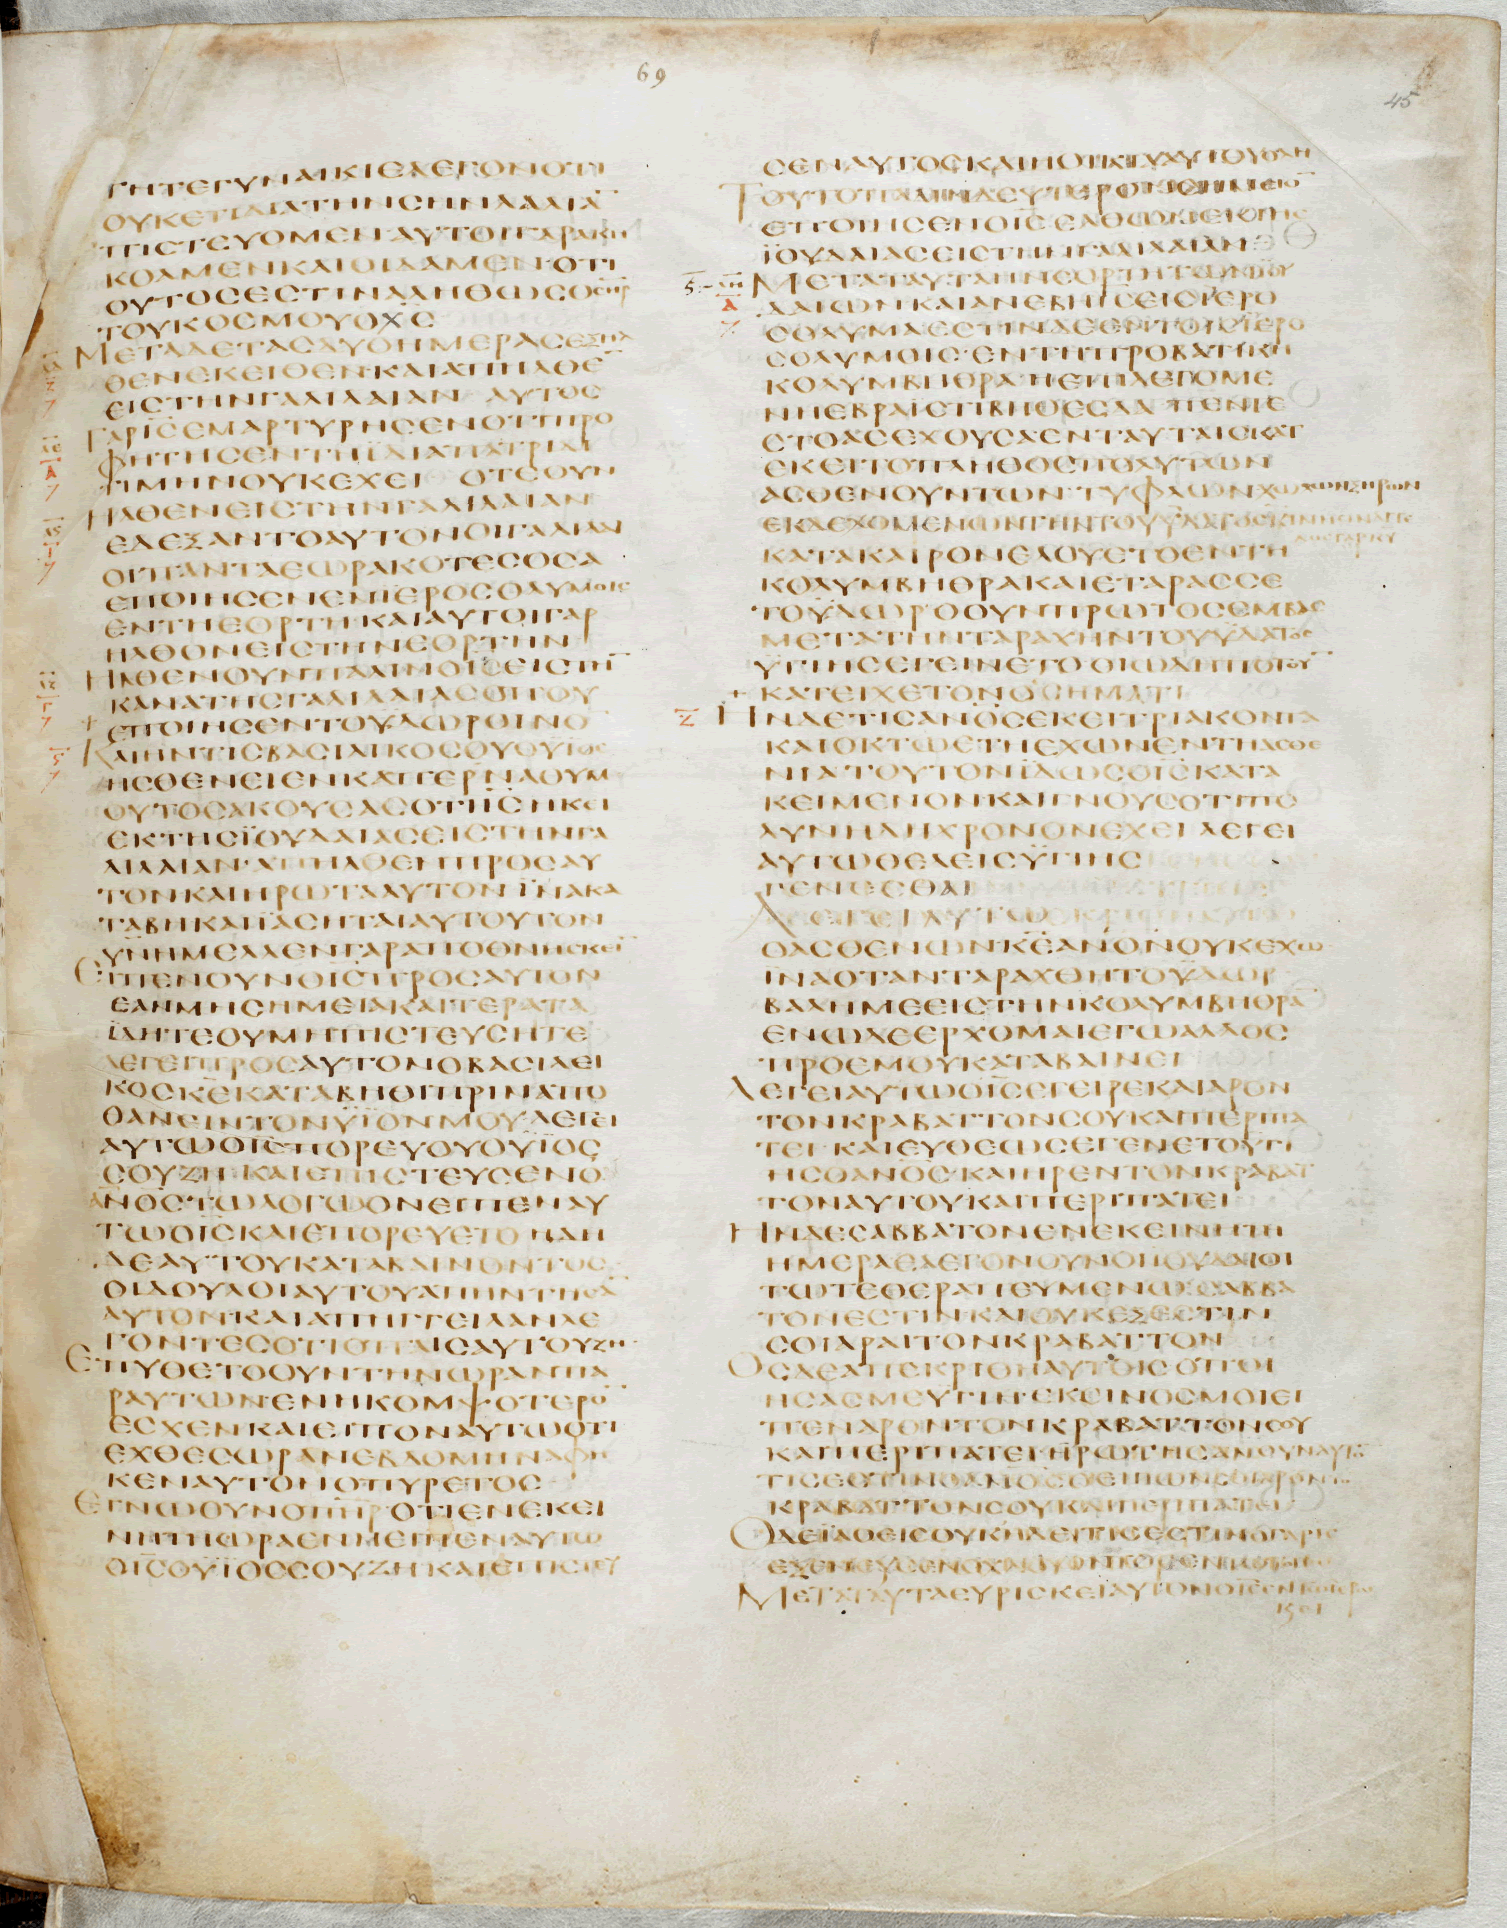 69
45
ΤΗΤΕΓΥΝΑΙΚΙΕΛΕΓΟΝΟΤΙ
ΟΥΚΕΤΙΔΙΑΤΗΝΣΗΝΛΑΛΙΑ̅
ΠΙΣΤΕΥΟΜΕΝΑΥΤΟΙΓΑΡΑΚΗ
ΚΟΑΜΕΝΚΑΙΟΙΔΑΜΕΝ·ΟΤΙ
ΟΥΤΟΣΕΣΤΙΝΑΛΗΘΩΣΟΣΗΡ
ΤΟΥΚΟΣΜΟΥΟΧΣ
ΜΕΤΑΔΕΤΑΣΔΥΟΗΜΕΡΑΣΕΞΗΛ
ΘΕΝΕΚΕΙΘΕΝ·ΚΑΙΑΠΗΛΘΕ̅
ΕΙΣΤΗΝΓΑΛΙΛΑΙΑΝ ΑΥΤΟΣ
ΓΑΡΙΣΕΜΑΡΤΥΡΗΣΕΝΟΤΙΠΡΟ
ΦΗΤΗΣΕΝΤΗΙΔΙΑΠΑΤΡΙΔΙ
ΤΙΜΗΝΟΥΚΕΧΕΙ ΟΤΕΟΥΝ
ΗΛΘΕΝΕΙΣΤΗΝΓΑΛΙΛΑΙΑΝ
ΕΔΕΞΑΝΤΟΑΥΤΟΝΟΙΓΑΛΙΛΑΙ
ΟΙΠΑΝΤΑΕΩΡΑΚΟΤΕΣΟΣΑ
ΕΠΟΙΗΣΕΝΕΝΙΕΡΟΣΟΛΥΜΟΙΣ
ΕΝΤΗΕΟΡΤΗΚΑΙΑΥΤΟΙΓΑΡ
ΗΛΘΟΝΕΙΣΤΗΝΕΟΡΤΗΝ
ΗΛΘΕΝΟΥΝΠΑΛΙΝΟΙΣΕΙΣΤΗ̅
ΚΑΝΑΤΗΣΓΑΛΙΛΑΙΑΣΟΠΟΥ
ΕΠΟΙΗΣΕΝΤΟΥΔΩΡΟΙΝΟ̅
ΚΑΙΗΝΤΙΣΒΑΣΙΛΙΚΟΣΟΥΟΥΙΟΣ
ΗΣΘΕΝΕΙΕΝΚΑΠΕΡΝΑΟΥΜ
ΟΥΤΟΣΑΚΟΥΣΑΣΟΤΙΙΣΗΚΕΙ
ΕΚΤΗΣΪΟΥΔΑΙΑΣΕΙΣΤΗΝΓΑ
ΛΙΛΑΙΑΝ·ΑΠΗΛΘΕΝΠΡΟΣΑΥ
ΤΟΝΚΑΙΗΡΩΤΑΑΥΤΟΝΪΝΑΚΑ
ΤΑΒΗΚΑΙΪΑΣΗΤΑΙΑΥΤΟΥΤΟΝ
ΥΝΗΜΕΛΛΕΝΓΑΡΑΠΟΘΝΗΣΚΕΙ̅
ΕΙΠΕΝΟΥΝΟΙΣΠΡΟΣΑΥΤΟΝ
ΕΑΝΜΗΣΗΜΕΙΑΚΑΙΤΕΡΑΤΑ
ΙΔΗΤΕΟΥΜΗΠΙΣΤΕΥΣΗΤΕ
ΛΕΓΕΙΠΡΟΣΑΥΤΟΝΟΒΑΣΙΛΕΙ
ΚΟΣΚΕΚΑΤΑΒΗΘΙΠΡΙΝΑΠΟ
ΘΑΝΕΙΝΤΟΝΥΪΟΝΜΟΥΛΕΓΕΙ
ΑΥΤΩΟΙΣΠΟΡΕΥΟΥΟΥΪΟΣ
ΣΟΥΖΗ ΚΑΙΕΠΙΣΤΕΥΣΕΝΟ
ΑΝΟΣΤΩΛΟΓΩΟΝΕΙΠΕΝΑΥ
ΤΩΟΙΣΚΑΙΕΠΟΡΕΥΕΤΟ ΗΔΗ
ΔΕΑΥΤΟΥΚΑΤΑΒΑΙΝΟΝΤΟΣ
ΟΙΔΟΥΛΟΙΑΥΤΟΥΑΠΗΝΤΗΣΑ̅
ΑΥΤΟΝ·ΚΑΙΑΠΗΓΓΕΙΛΑΝΛΕ
ΓΟΝΤΕΣΟΤΙΟΠΑΙΣΑΥΤΟΥΖΗ·
ΕΠΥΘΕΤΟΟΥΝΤΗΝΩΡΑΝΠΑ
ΡΑΥΤΩΝ·ΕΝΗΚΟΜΨΟΤΕΡΟ̅
ΕΣΧΕΝΚΑΙΕΙΠΟΝΑΥΤΩΟΤΙ
ΕΧΘΕΣΩΡΑΝΕΒΔΟΜΗΝΑΦΗ
ΚΕΝΑΥΤΟΝΟΠΥΡΕΤΟΣ
ΕΓΝΩΟΥΝΟΠΗΡΟΤΙΕΝΕΚΕΙ
ΝΗΤΗΩΡΑΕΝΗΕΙΠΕΝΑΥΤΩ
ΟΙΣΟΥΪΟΣΣΟΥΖΗΚΑΙΕΠΙΣΤΕΥ
ΣΕΝΑΥΤΟΣΚΑΙΗΟΙΚΙΑΑΥΤΟΥΟΛΗ
ΤΟΥΤΟΠΑΛΙΝΔΕΥΤΕΡΟΝΣΗΜΕΙΟ̅
ΕΠΟΙΗΣΕΝΟΙΣΕΛΘΩΝΕΚΤΗΣ
ΪΟΥΔΑΙΑΣΕΙΣΤΗΝΓΑΛΙΛΑΙΑΝ
ΜΕΤΑΤΑΥΤΑΗΝΕΟΡΤΗΤΩΝΪΟΥ
ΔΑΙΩΝΚΑΙΑΝΕΒΗΙΣΕΙΣΙΕΡΟ
ΣΟΛΥΜΑΕΣΤΙΝΔΕΕΝΤΟΙΣΪΕΡΟ
ΣΟΛΥΜΟΙΣ·ΕΝΤΗΠΡΟΒΑΤΙΚΗ
ΚΟΛΥΜΒΗΘΡΑ·ΗΕΠΙΛΕΓΟΜΕ
ΝΗΕΒΡΑΪΣΤΙΒΗΘΕΣΔΑ ΠΕΝΤΕ
ΣΤΟΑΣΕΧΟΥΣΑΕΝΤΑΥΤΑΙΣΚΑΤ
ΕΚΕΙΤΟΠΛΗΘΟΣΠΟΛΥΤΩΝ
ΑΣΘΕΝΟΥΝΤΩΝ·ΤΥΦΛΩΝΧΩΛΩΝΞΗΡΩΝ
ΕΚΔΕΧΟΜΕΝΩΝΤΗΝΤΟΥΫΔΑΤΟΣΚΙΝΗΣΙΝΑΓΓΕ
ΛΟΣΓΑΡΚΥ
ΚΑΤΑΚΑΙΡΟΝΕΛΟΥΕΤΟΕΝΤΗ
ΚΟΛΥΜΒΗΘΡΑΚΑΙΕΤΑΡΑΣΣΕ
ΤΟΫΔΩΡ·ΟΟΥΝΠΡΩΤΟΣΕΜΒΑΣ
ΜΕΤΑΤΗΝΤΑΡΑΧΗΝΤΟΥΫΔΑΤΟΣ
ΥΓΙΗΣΕΓΕΙΝΕΤΟ
ΚΑΤΕΙΧΕΤΟΝΟΣΗΜΑΤΙ
ΗΝΔΕΤΙΣΑΝΟΣΕΚΕΙΤΡΙΑΚΟΝΤΑ
ΚΑΙΟΚΤΩΕΤΗΕΧΩΝΕΝΤΗΑΣΘΕ
ΝΙΑΤΟΥΤΟΝΪΔΩΣΟΙΣΚΑΤΑ
ΚΕΙΜΕΝΟΝΚΑΙΓΝΟΥΣΟΤΙΠΟ
ΛΥΝΗΔΗΧΡΟΝΟΝΕΧΕΙΛΕΓΕΙ
ΑΥΤΩΘΕΛΕΙΣΫΓΙΗΣ
ΓΕΝΕΣΘΑΙ
ΛΕΓΕΙΑΥΤΩ
ΟΑΣΘΕΝΩΝΚΕΑΝΟΝΟΥΚΕΧΩ
ΪΝΑΟΤΑΝΤΑΡΑΧΘΗΤΟΫΔΩΡ
ΒΑΛΗΜΕΕΙΣΤΗΝΚΟΛΥΜΒΗΘΡΑ̅
ΕΝΩΔΕΕΡΧΟΜΑΙΕΓΩΑΛΛΟΣ
ΠΡΟΕΜΟΥΚΑΤΑΒΑΙΝΕΙ
ΛΕΓΕΙΑΥΤΩΟΙΣΕΓΕΙΡΕΚΑΙΑΡΟΝ
ΤΟΝΚΡΑΒΑΤΤΟΝΣΟΥΚΑΙΠΕΡΙΠΑ
ΤΕΙ·ΚΑΙΕΥΘΕΩΣΕΓΕΝΕΤΟΥΓΙ
ΗΣΟΑΝΟΣ·ΚΑΙΗΡΕΝΤΟΝΚΡΑΒΑΤ
ΤΟΝΑΥΤΟΥΚΑΙΠΕΡΙΠΑΤΕΙ
ΗΝΔΕΣΑΒΒΑΤΟΝΕΝΕΚΕΙΝΗΤΗ
ΗΜΕΡΑΕΛΕΓΟΝΟΥΝΟΙΪΟΥΔΑΙΟΙ
ΤΩΤΕΘΕΡΑΠΕΥΜΕΝΩΣΑΒΒΑ
ΤΟΝΕΣΤΙΝΚΑΙΟΥΚΕΞΕΣΤΙΝ
ΣΟΙΑΡΑΙΤΟΝΚΡΑΒΑΤΤΟΝ
ΟΣΔΕΑΠΕΚΡΙΘΗΑΥΤΟΙΣΟΠΟΙ
ΗΣΑΣΜΕΥΓΙΗ·ΕΚΕΙΝΟΣΜΟΙΕΙ
ΠΕΝΑΡΟΝΤΟΝΚΡΑΒΑΤΤΟΝΣΟΥ
ΚΑΙΠΕΡΙΠΑΤΕΙΗΡΩΤΗΣΑΝΟΥΝΑΥΤΟ̅
ΤΙΣΕΣΤΙΝΟΑΝΟΣΟΕΙΠΩΝΣΟΙΑΡΟΝ
ΚΡΑΒΑΤΤΟΝΣΟΥΚΑΙΠΕΡΙΠΑΤΕΙ
ΟΔΕΪΑΘΕΙΣΟΥΚΗΔΕΙΤΙΣΕΣΤΙΝΟΓΑΡΙΣ
ΕΞΕΝΕΥΣΕΝΟΧΛΟΥΟΝΤΟΣΕΝΤΩΤΟΠΩ
ΜΕΤΑΤΑΥΤΑΕΥΡΙΣΚΕΙΑΥΤΟΝΟΙΣΕΝΤΩΙΕΡΩ
ΚΑΙ